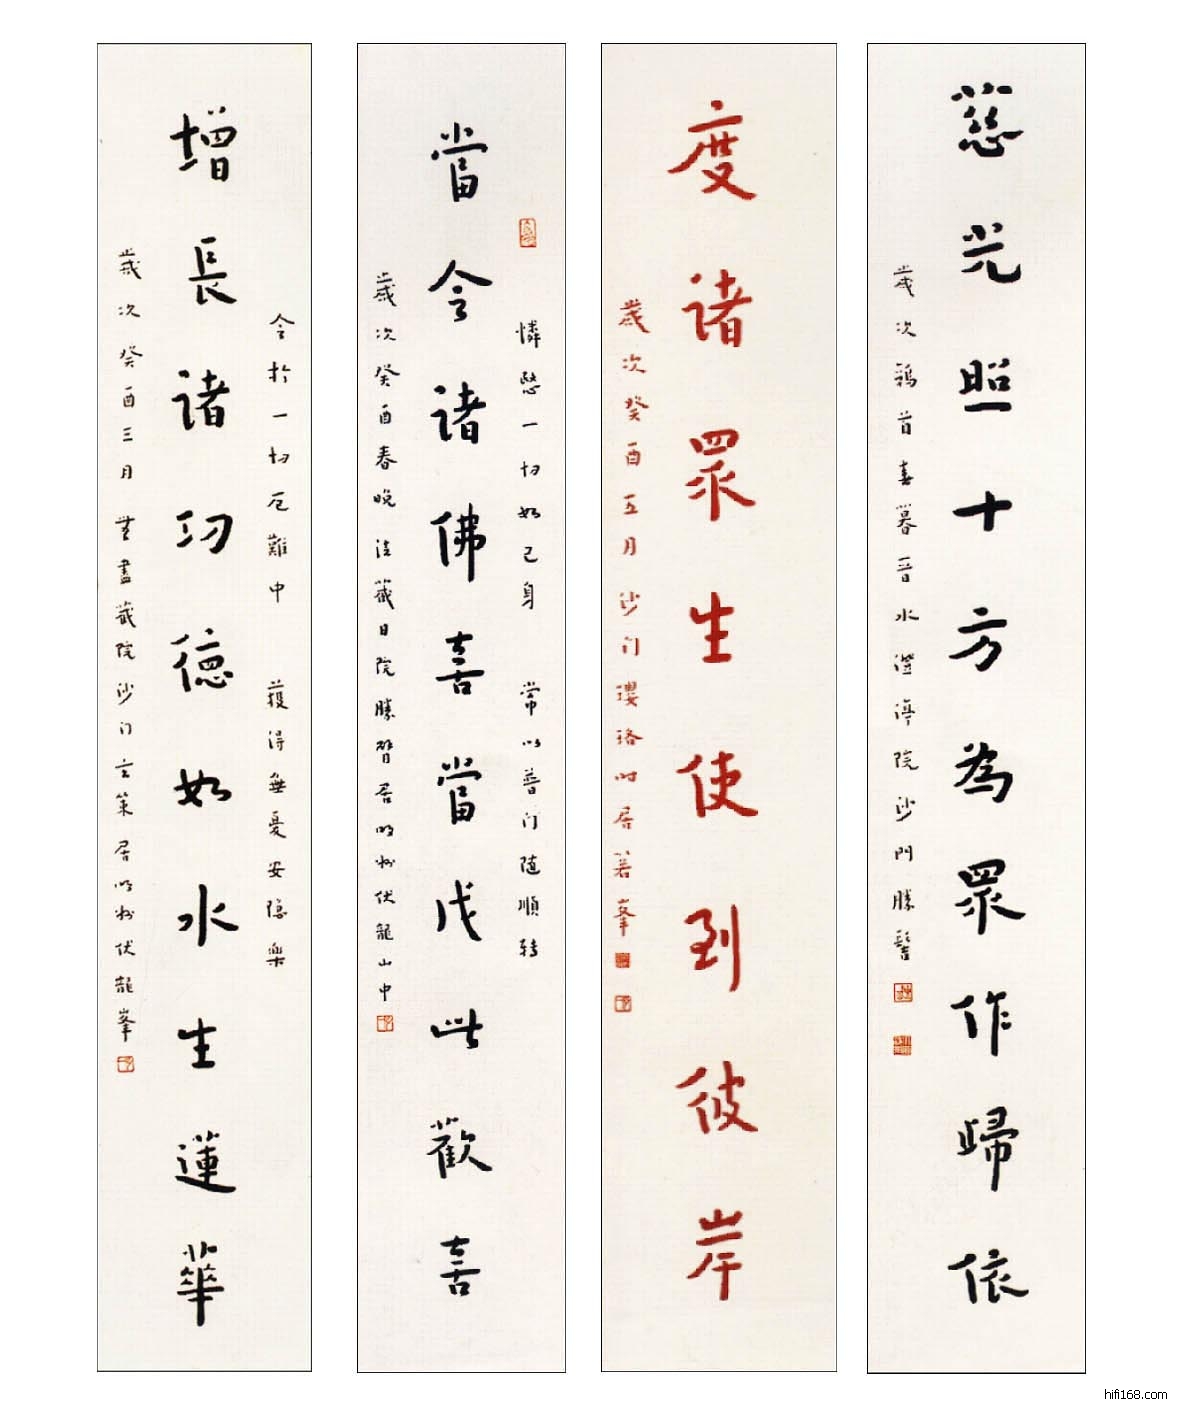 慈光照十方為眾作歸依
歲次鶉首春暮晉水澄渟院沙門勝髻
度諸眾生使到彼岸
歲次癸酉五月沙門瓔珞時居茗峯
憐愍一切如己身 常以普门随順转
當令諸佛喜當成此歡喜
歲次癸酉春晚法藏日院勝臂居明州伏龍山中
令於一切厄難中 獲得無憂安隐樂
增長諸功德如水生蓮華
歲次癸酉三月無盡藏院沙门玄策居明州伏龍峯
hifi168.com